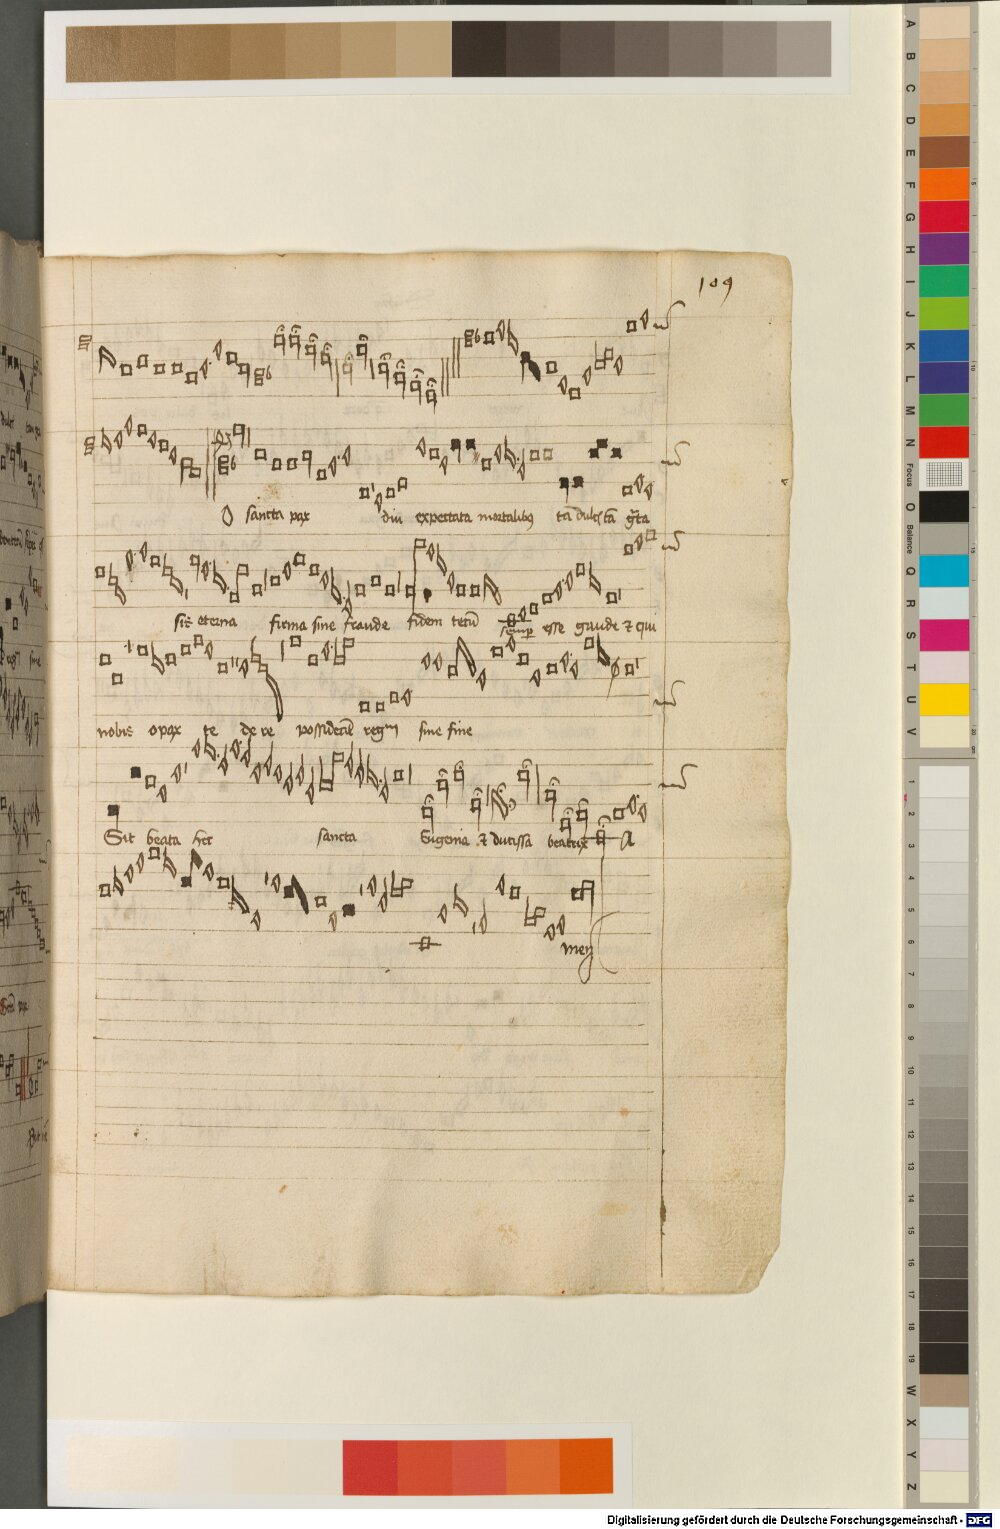 109
O sancta pax diu expectata mortalibꝫ tā dulcis tā
sis eterna firma sine fraude fidem tecū semꝑ esse gaude ⁊ qui
nobis o pax te de re possidere sine fine
Sit beata hec sancta Eugenia ⁊ ducissa beatrix A
men
A
B
C
D
E
F
G
H
I
J
K
L
M
N
Focus
O
Balance
Q
R
S
T
U
V
1
2
3
4
5
6
7
8
9
10
11
12
13
14
15
16
17
18
19
W
X
Y
Z
Digitalisierung gefördert durch die Deutsche Forschungsgemeinschaft - DFG